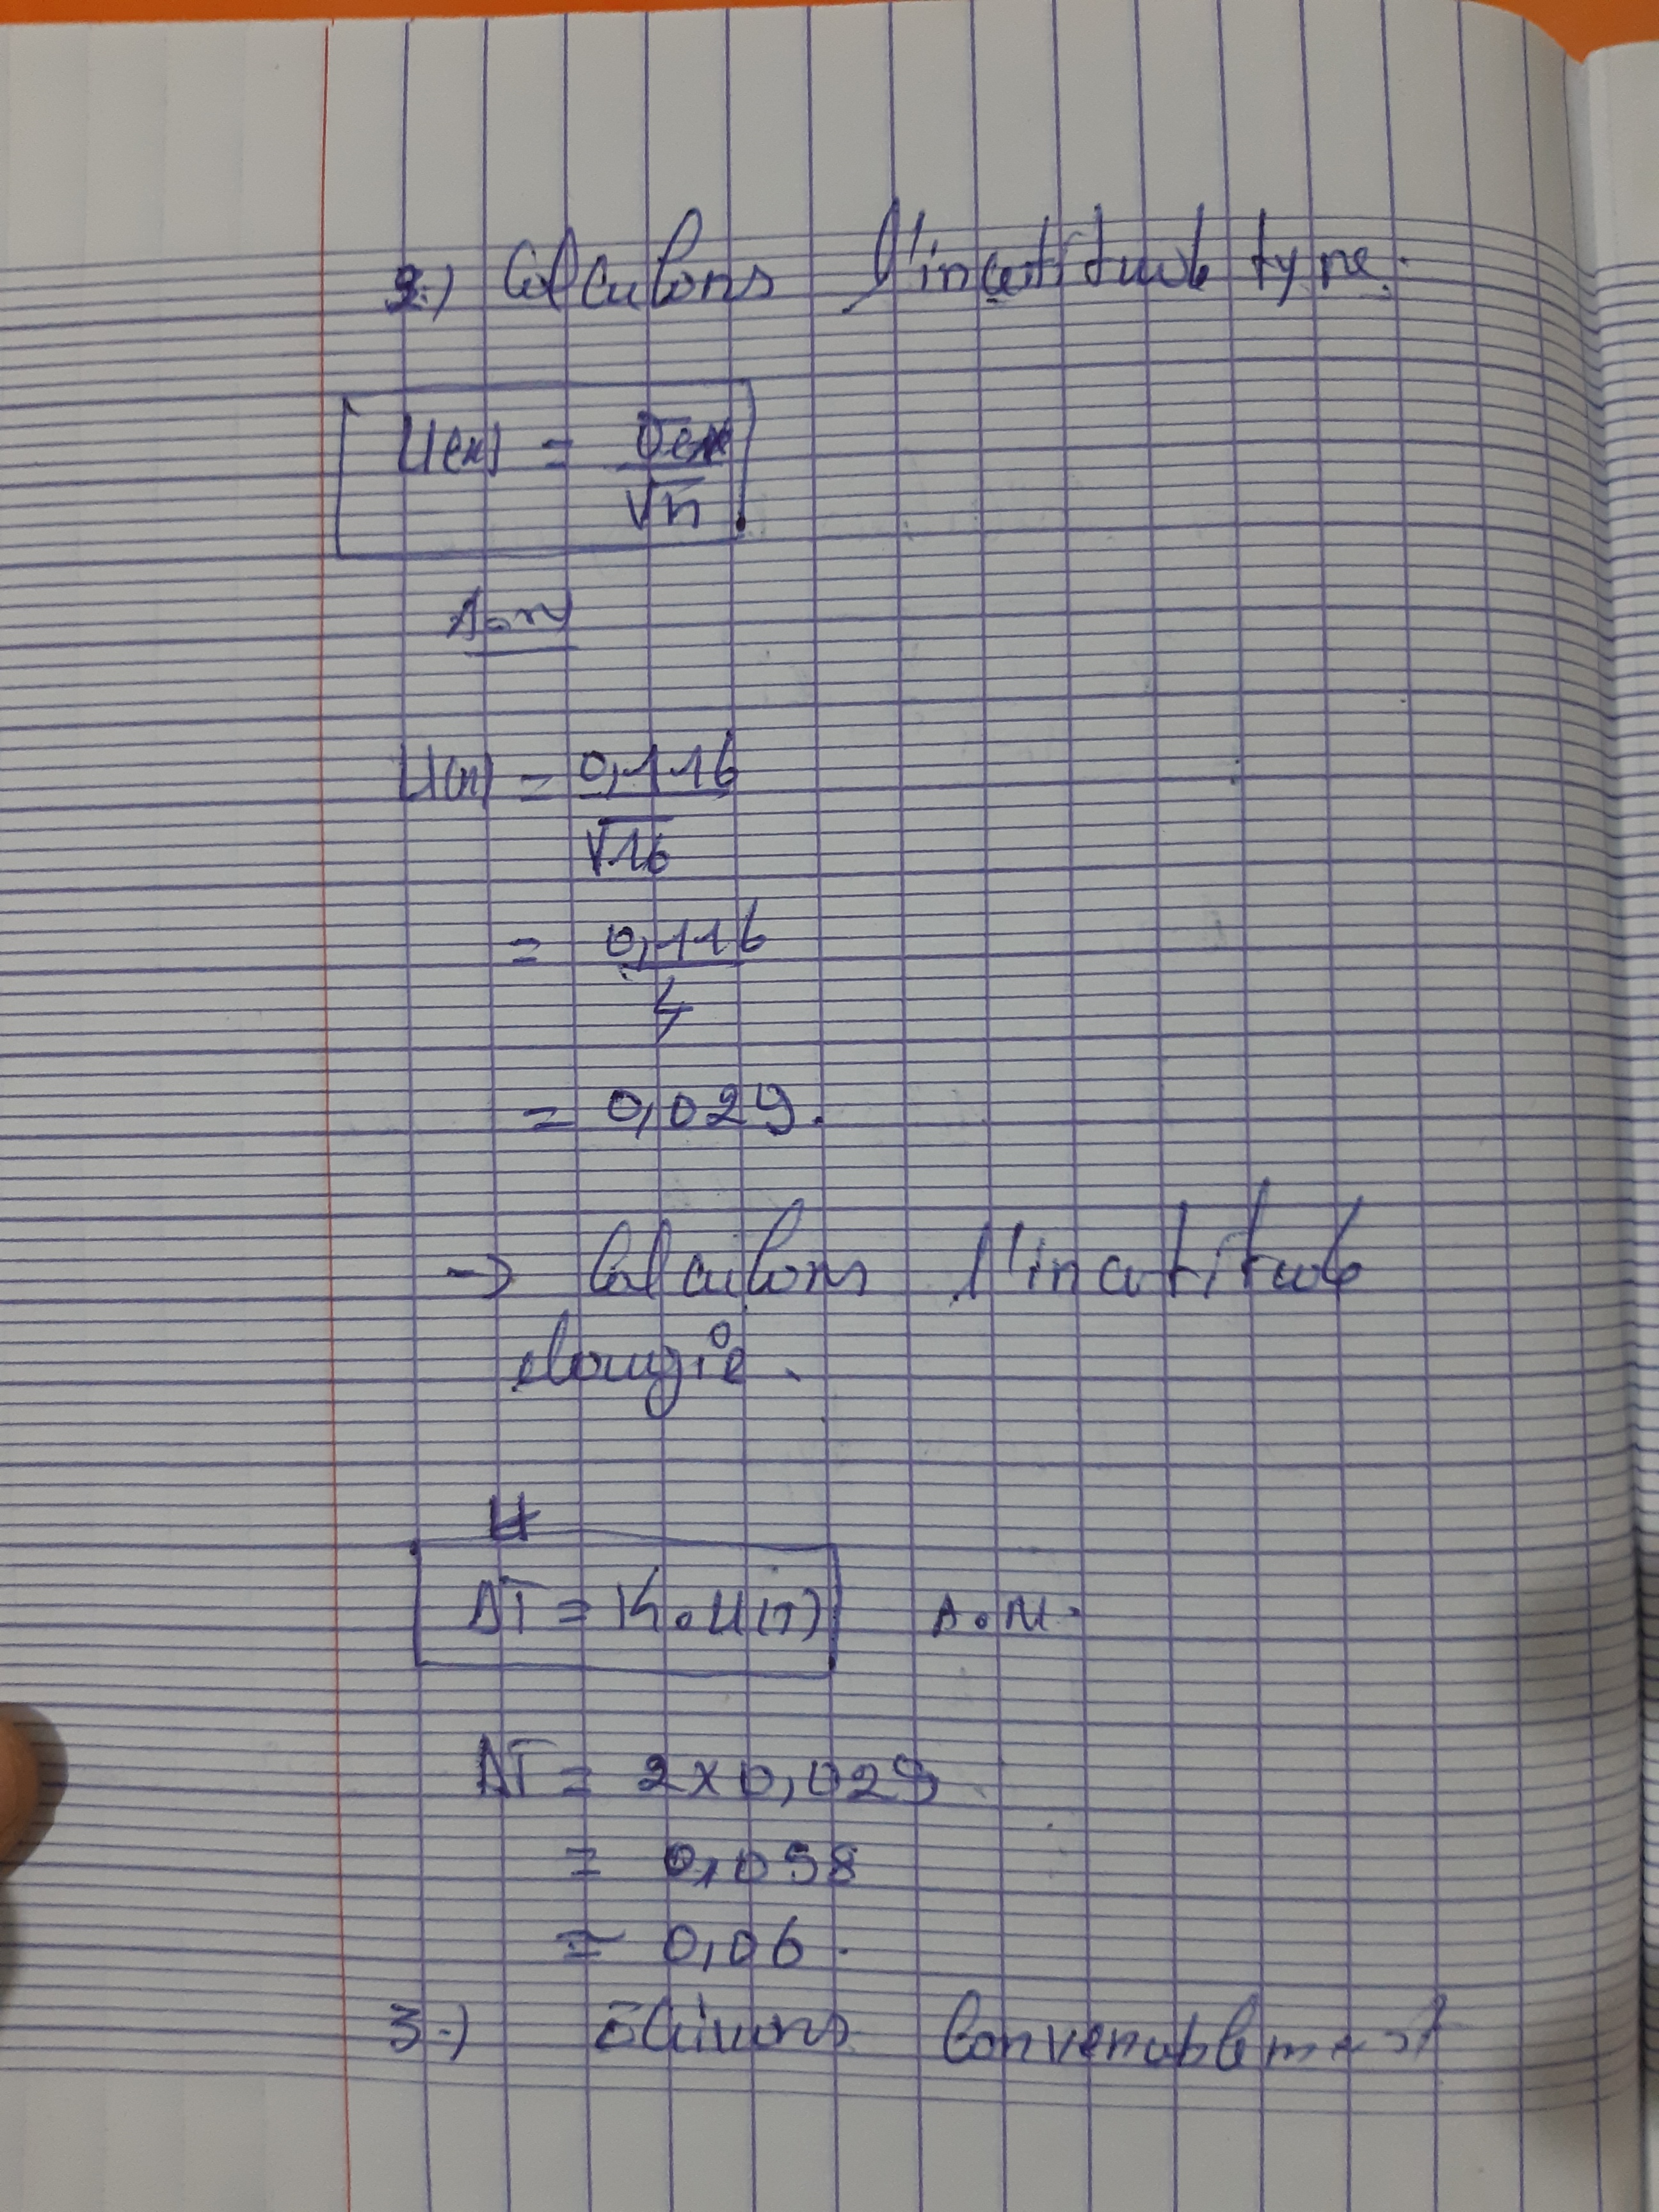 2.) Calculons l'incertitude type.
U(x) = σex / √n
A.N
U(x) = 0,116 / √16
= 0,116 / 4
= 0,029.
→ Calculons l'incertitude
elargie.
ΔT = K.U(T) A.N.
ΔT = 2x0,029
= 0,058
= 0,06.
3.) Écrivons Convenablement